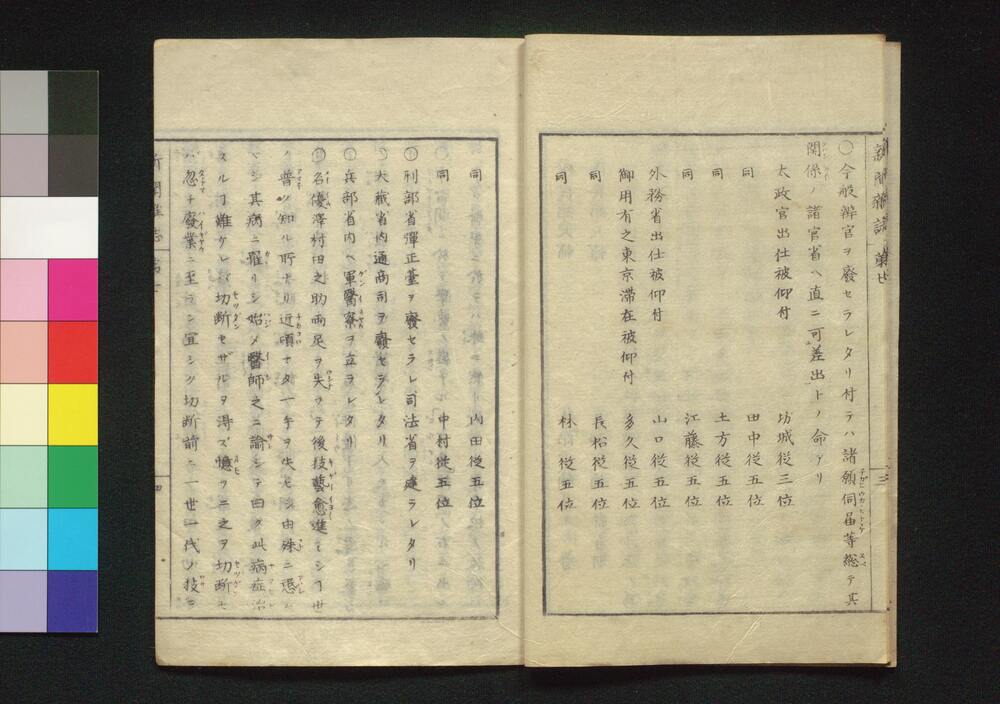 新聞雜誌 第七 三
○今般辨官ヲ廢セラレタリ付テハ諸願伺届等總テ其
關係ノ諸官省ヘ直ニ可差出トノ命アリ
太政官出仕被仰付 坊城從三位
同 田中從五位
同 土方從五位
同 江藤從五位
外務省出仕被仰付 山口從五位
御用有之東京滞在被仰付 多久從五位
同 長松從五位
同 林從五位
同 内田從五位
同 中村從五位
○刑部省彈正臺ヲ廢セラレ司法省ヲ建ラレタリ
○大藏省内通商司ヲ廢セラレタリ
○兵部省内ヘ軍醫寮ヲ立ラレタリ
○名優澤村田之助兩足ヲ失フテ後技藝愈進ミシヿ世
ノ普ク知ル所ナリ近頃ナタ一手ヲ失ヒシ由殊ニ憑ム
ベシ其病ニ罹リシ始メ醫師之ニ諭シテ曰ク此病症治
スルヿ難ケレバ切断セザルヲ得ズ憶フニ之ヲ切断セ
バ忽チ廢業ニ至ラン宜シク切断前ニ一世一代ノ技ヲ
新聞雜誌 第七 四